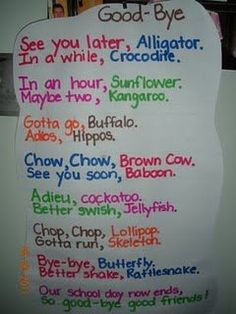 Good-Bye
See you later, Alligator.
In a while, Crocodile.
In an hour, Sunflower.
Maybe two, Kangaroo.
Gotta go, Buffalo.
Adios, Hippos.
Chow, Chow, Brown Cow.
See you soon, Baboon.
Adieu, cockatoo.
Better swish, Jellyfish.
Chop, Chop, Lollipop.
Gotta run, Skeleton.
Bye-bye, Butterfly.
Better shake, Rattlesnake.
Our school day now ends,
So good-bye good friends!